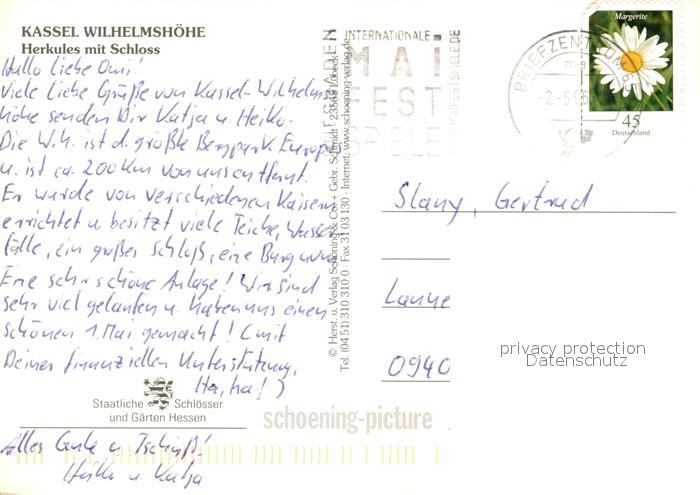 KASSEL WILHELMSHÖHE
Herkules mit Schloss
Hallo liebe Omi!
Viele liebe Grüße von Kassel-Wilhelms
höhe senden Dir Katja u Heiko.
Die W.h. ist d. größte Bergpark Europas
u. ist ca. 200 km von uns entfernt.
Er wurde von verschiedenen Kaisern
errichtet u besitzt viele Teiche, Wasser
fälle, ein großes Schloß, eine Burg uvm
Eine sehr schöne Anlage! Wir sind
sehr viel gelaufen u. haben uns einen
schönen 1. Mai gemacht! (mit
Deiner finanziellen Unterstützung,
Ha, ha!)
Staatliche Schlösser
und Gärten Hessen
Alles Gute u Tschüß!
Heiko u. Katja
© Herst. u. Verlag Schöning & Co + Gebr. Schmidt · 23558 Lübeck
Tel. (04 51) 310 310 0 · Fax 31 03 130 · Internet: www.schoening-verlag.de
INTERNATIONALE
MAI
FEST
SPIELE
WIESBADEN
BRIEFZENTRUM
Margerite
45
Deutschland
Slany, Gertrud
0940
privacy protection
Datenschutz
schoening-picture